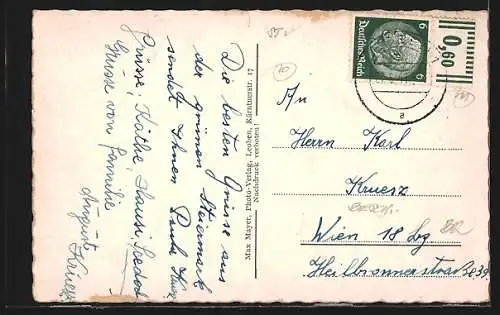 Die besten Grüsse aus
der grünen Steiermark
sendet Ihnen
Grüsse, Käthe, Hansi
Grüsse von Familie
Auguste
Max Mayer, Photo-Verlag, Leoben, Kärntnerstr. 17
Nachdruck verboten!
Deutsches Reich
6 6
0,60
a
An
Herrn Karl
Kruesz
Wien 18
Heilbronnerstraße